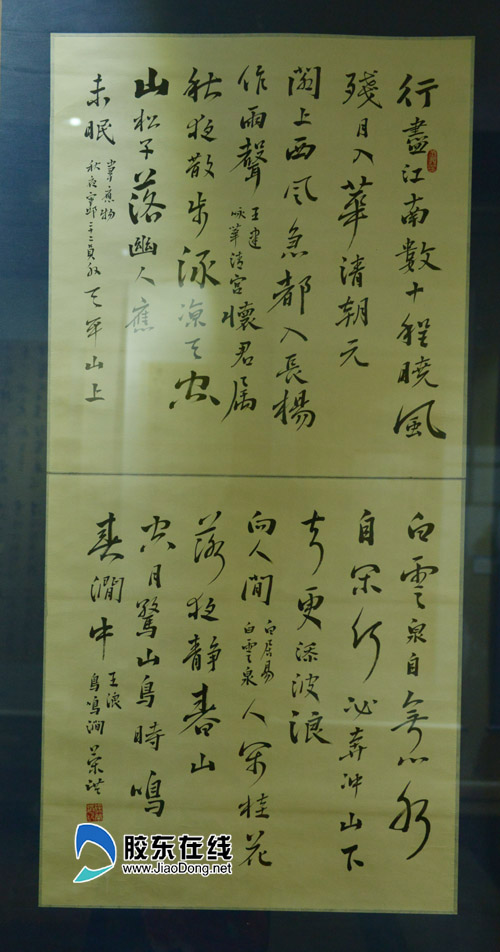 行盡江南數十程曉風
殘月入華清朝元
閣上西風急都入長楊
作雨聲 王建 咏華清宮 懷君屬
秋夜散步詠涼天空
山松子落幽人應
未眠 韋應物 秋夜寄邱二十二員外 天平山上
白雲泉自無心水
自閑何必奔冲山下
去更添波浪
向人間 白居易 白雲泉 人閑桂花
落夜靜春山
空月驚山鳥時鳴
春澗中 王維 鳥鳴澗
胶东在线
www.JiaoDong.net